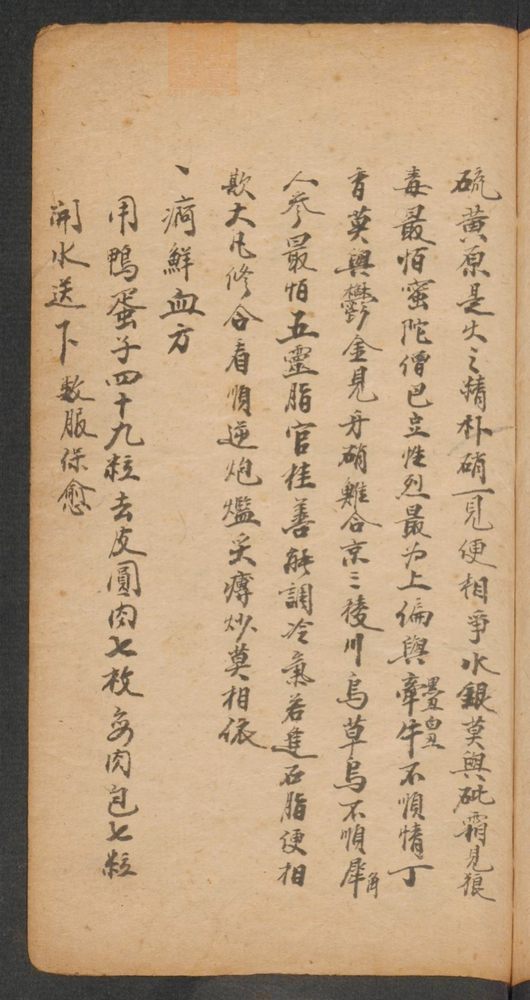 硫黄原是火之精朴硝一見便相爭水銀莫與砒霜見狼
毒最怕蜜陀僧巴豆性烈最为上偏與牽牛黑丑白丑不順情丁
香莫與欎金見牙硝難合京三稜川烏草烏不順犀角
人參最怕五靈脂官桂善能調冷氣若逢石脂便相
欺大凡修合看順逆炮爁炙煿炒莫相依
、痾鮮血方
用鴨蛋子四十九粒去皮圓肉七枚每肉包七粒
開水送下数服保愈